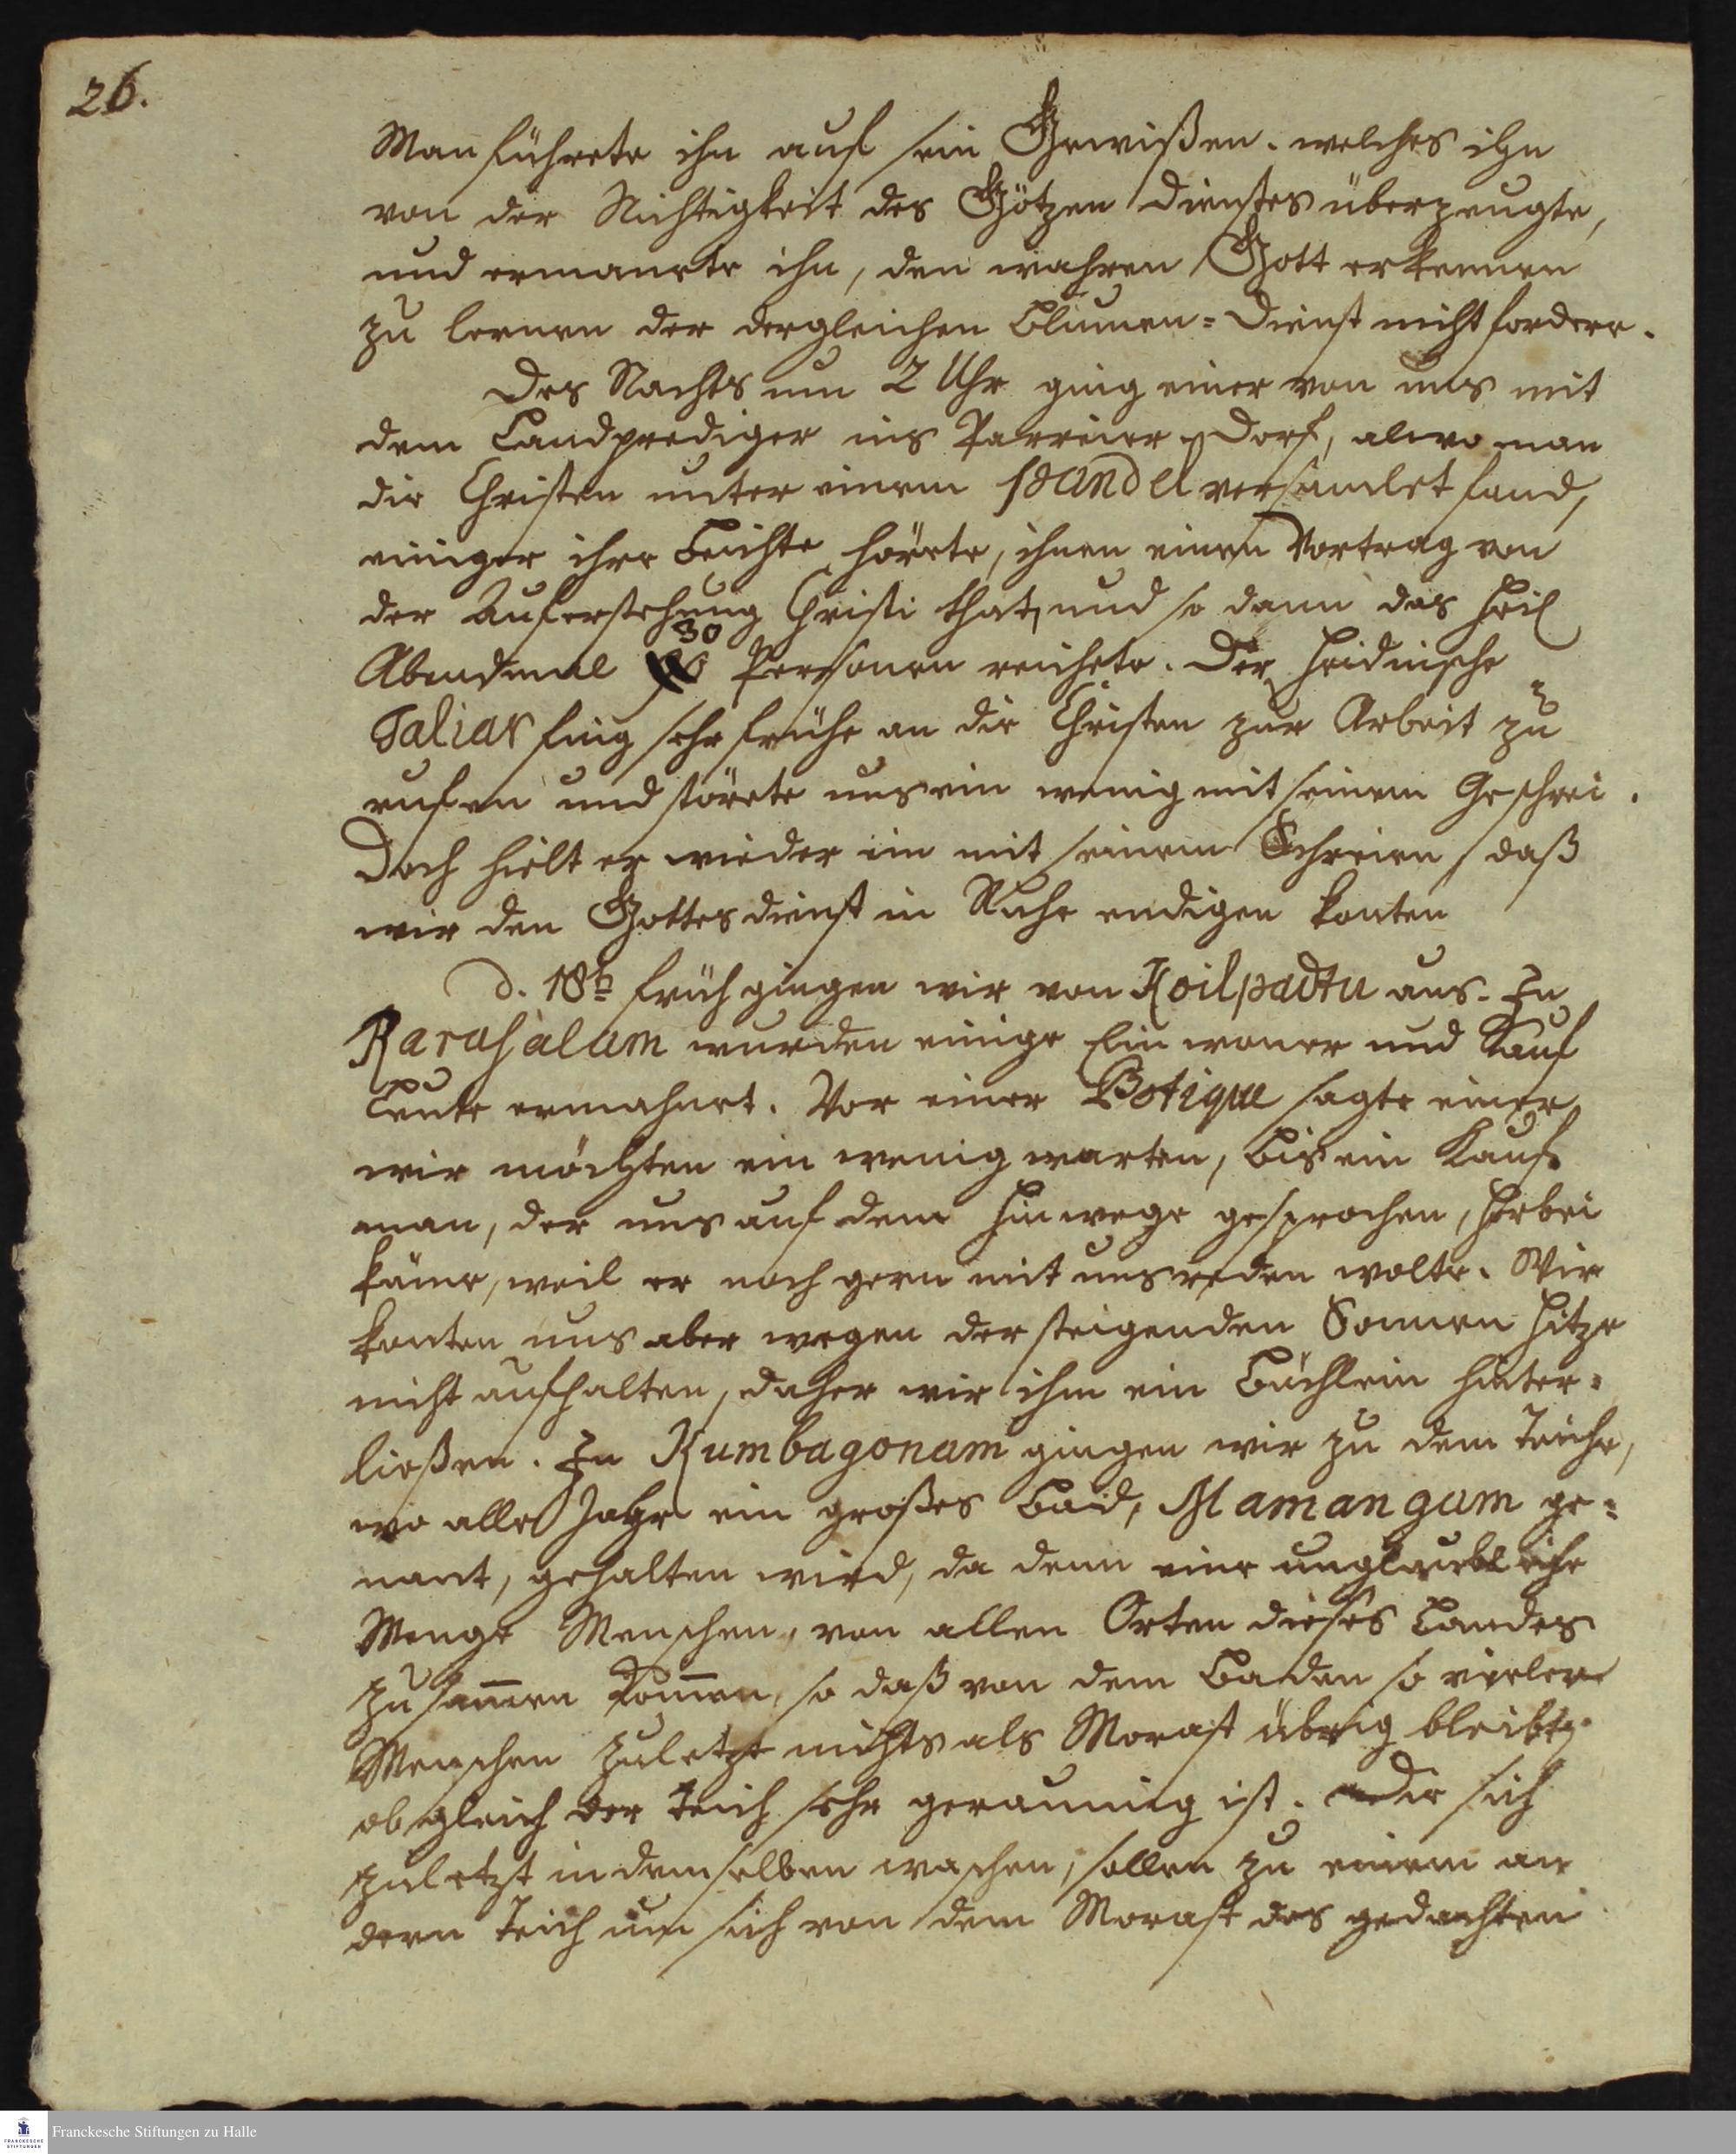 26.
Man führete ihn auf sein Gewißen. welches ihn
von der Nichtigkeit des Götzen dienstes überzeugte,
und ermanete ihn, den wahren Gott erkennen
zu lernen der dergleichen Blumen=Dienst nicht fordere.
Des Nachts um 2 Uhr ging einer von uns mit
dem Landprediger ins Parreier=Dorf, alwo man
die Christen unter einem pandel versamlet fand,
einiger ihre Beichte hörete, ihnen einen Vortrag von
der Auferstehung Christi that, und so dann das Heil
Abendmal 30 Personen reichete. Der Heidnische
Taliar fing sehr frühe an die Christen zur Arbeit zu
rufen und störete uns ein wenig mit seinem Geschrei.
Doch hielt er wieder in mit seinem Schreien, daß
wir den Gottesdienst in Ruhe endigen konten
d. 18t früh gingen wir von Koilpadtu aus. In
Rarasalam wurden einige Einwoner und Kauf
Leute ermahnet. Vor einer Botique sagte einer
wir möchten ein wenig warten, bis ein Kauf-
man, der uns auf dem Hinwege gesprochen, herbei
käme, weil er noch gern mit uns reden wolte. Wir
konten uns aber wegen der steigenden Sonnen Hitze
nicht aufhalten, daher wir ihm ein Büchlein hinter=
ließen. In Kumbagonam gingen wir zu dem Teiche,
wo alle Jahr ein großes Bad, Mamangam ge=
nant, gehalten wird, da denn eine unglaubliche
Menge Menschen, von allen Orten dieses Landes
zusam̄en kom̄en, so daß von dem Baden so vieler
Menschen zuletzt nichts als Morast übrig bleibt,
obgleich der Teich sehr geraumig ist. Die sich
zuletzt in demselben waschen, sollen zu einem an
dern Teich um sich von dem Morast des gedachten